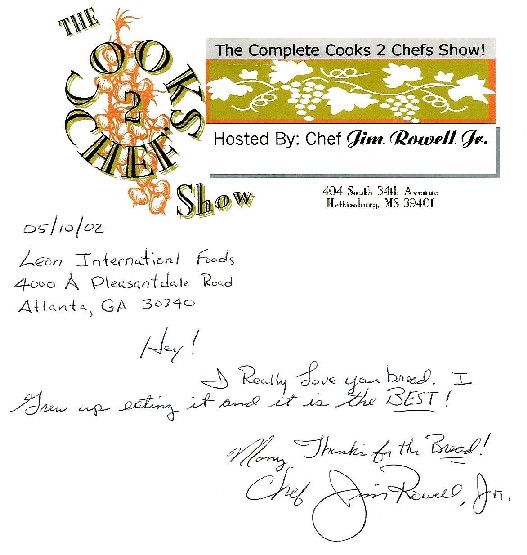 THE
COOKS
2
CHEFS
Show
The Complete Cooks 2 Chefs Show!
Hosted By: Chef Jim Rowell Jr.
404 South 34th Avenue
Hattiesburg, MS 39401
05/10/02
Leon International Foods
4000 A Pleasantdale Road
Atlanta, GA 30340
Hey!
I Really Love your bread. I
Grew up eating it and it is the BEST!
Many Thanks for the Bread!
Chef Jim Rowell, Jr.